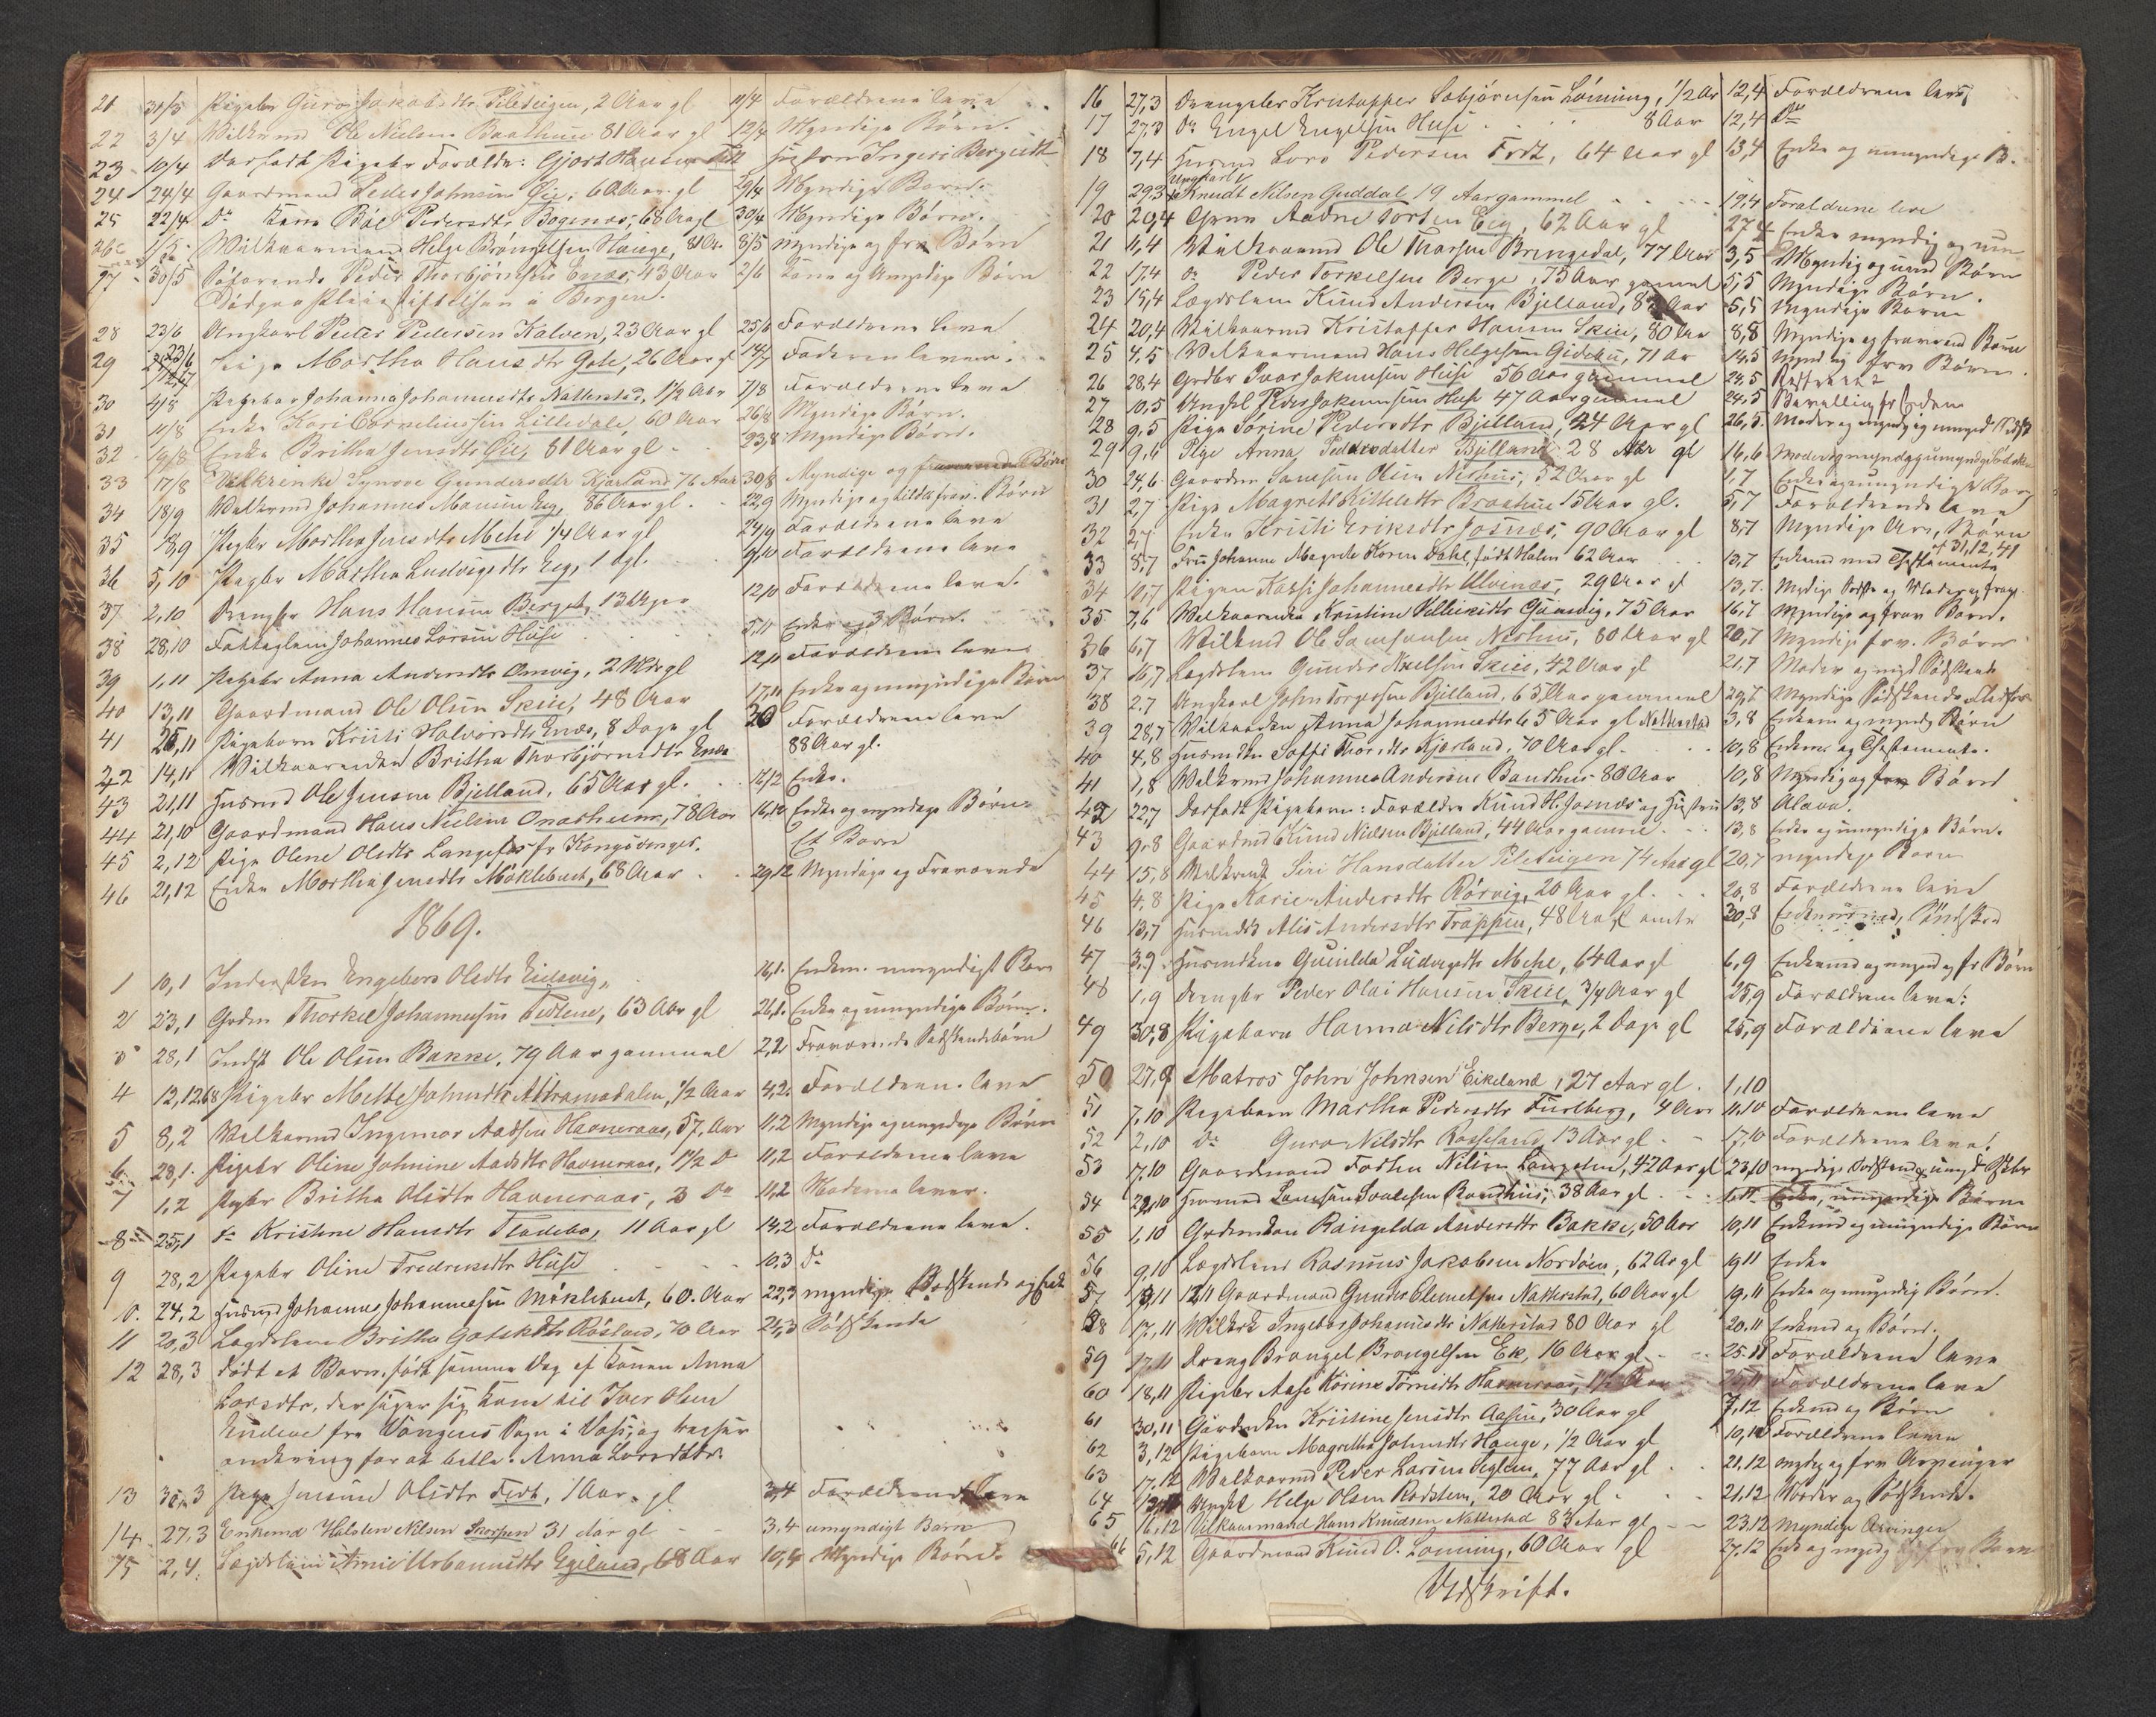 21 31/3 Pigebr Guro Jakobsdtr Pileteigen, 2 Aar gl 11/4 Forældrene leve
22 3/4 Vilkrmd Ole Nielsen Baathuus 81 Aar gl 12/4 Myndige Børn.
23 10/4 Dødfødt Pigebr Forældr: Gjert Hansen
24 24/4 Gaardmand Peder Johnsen Øie, 60 Aar gl 29/4 Myndige Børn.
25 22/4 Do Kone Pedersdtr Bogenæs, 68 Aar gl 30/4 Myndige Børn.
26 1/5 Vilkaarmand Helge Brønnelsen Hauge, 81 Ar 8/5 myndige og frv Børn
27 30/5 Søfarende Peder Thorbjørnsen Enæs, 43 Aar 2/6 Kone og Umyndige Børn
Død paa Pleiestiftelsen i Bergen.
28 23/6 Ungkarl Peder Pedersen Kalven, 23 Aar gl 25/6 Forældrene leve
29 Pige Martha Hansdtr Gole, 26 Aar gl 14/7 Faderen lever.
30 4/8 Pigebar Johanna Johannesdtr Nattersted, 1½ Aar 7/8 Forældrene leve
31 11/8 Enke Kari Corneliussen Lilledale, 60 Aar 26/8 Myndige Børn.
32 19/8 Enke Britha Jensdtr Øie, 81 Aar gl 23,8 Myndige Børn.
33 17/8 Vilkrenke Synnove Gundersdtr Kjærland 76 Aar 30/8 Myndige og fraværende Børn
34 18/9 Vilkrmd Johannes Monsen Eeg, 86 Aar gl 22,9 Myndige og tildels frav. Børn
35 18,9 Pigebr Martha Jensdtr Mehl 1/4 Aar gl 24/9 Forældrene leve
36 5,10 Pigebr Martha Ludvigsdtr Eeg, 1 dgl. 9/10 Forældrene leve
37 2,10 Drengbr Hans Hansen Berget, 13 Uger 12/10 Forældrene leve.
38 28,10 Fattiglem Johannes Larsen Huse 5,11 Enke og 3 Børn.
39 1,11 Pigebr Anna Andersdtr Omvig, 2 Mdr gl 12,11 Forældrene leve
40 13,11 Gaardmand Ole Olsen Skeie, 48 Aar 17,11 Enke og umyndige Børn
41 25,11 Pigebarn Kristi Halvorsdtr Enæs, 8 Dage gl 30 Forældrene leve
42 14,11 Vilkaarenken Britha Thorbjørnsdtr Enæs 88 Aar gl.
43 21,11 Husmd Ole Jensen Bjelland, 65 Aar gl. 14/12 Enke.
44 21,10 Gaardmand Hans Nielsen Onarheim, 78 Aar 16,12 Enke og myndige Børn
45 2,12 Pige Olene Olsdtr Langeaas fr Kongsvinger. Et Barn
46 21,12 Enke Martha Jensdtr Møklebust, 68 Aar 29,12 Myndige og Fraværende
1869.
1 10,1 Inderstken Engebor Olsdtr Eidsvig, 16,1. Enkem. umyndigt Barn
2 23,1 Grdm Thorkel Johannessen Tvetene, 63 Aar gl 26,1. Enke og umyndige Børn.
3 28,1 Indst Ole Olsen Bakke, 79 Aar gammel 2,2 Fraværende Sødskendebørn
4 12,12.68 Pigebr Mette Johnsdtr Attramadalen, ½ Aar 4,2. Forældrene leve
5 8,2 Vilkaarmd Ingemar Aadsen Havneraas, 57, Aar 11,2 Myndige og umyndige Børn
6 28,1. Pigebr Oline Johnine Aadsdtr Havneraas, 1½ D 11,2 Forældrene leve
7 1,2 Pigbr Britha Olsdtr Havneraas, 3 Do 11,2 Moderen lever.
8 25,1 do Kristine Hansdtr Flatebø, 11 Aar gl 14,2 Forældrene leve.
9 28,2 Pigebr Oline Fredriksdtr Huse 10,3 Do
0. 24,2 Husmd Johannes Johannessen Møklebust, 60. Aar 22,3 myndige Sødskende og Enke
11 20,3 Lægdslem Britha Gotskdtr Røsland, 70 Aar 24,3 Sødskende
12 28,3 Født et Barn, født samme Dag af Konen Anna
Larsdtr, der siger sig kone til Iver Olsen
Endeve fra Vangens Sogn i Vos, og reiser
omkring for at betle. Anna Larsdtr.
13 30,3 Pige Jensine Olsdtr Fedt, 1 Aar gl 3,4 Forældrene leve
14 27,3 Enkemd Halsten Nilsen Skorpen 31 Aar gl 3,4 umyndigt Barn
15 2,4. Lægdslem Anne Urbanusdtr Egeland, 68 Aar 10,4 Myndige Børn.
16 27,3 Drengebr Kristoffer Sæbjørnsen Lønning, ½ Ar 12,4 Forældrene leve
17 27,3 Do Engel Engelsen Huse 8 Aar 12,4 Do
18 7,4 Husmd Lars Pedersen Fedt, 64 Aar gl 13,4 Enke og umyndige B.
19 29,3 Ungkarl Knudt Nilsen Guddal 19 Aar gammel 17,4 Forældrene leve
20 20,4 Grmn Aadne Torsen Eeg, 62 Aar gl 27,4 Enke myndig og um
21 11,4 Vilkaarmd Ole Tharsen Bringedal, 77 Aar 3,5 Myndig og umd Børn
22 17,4 Do Peder Torkelsen Berge, 75 Aar gammel 5,5 Myndige Børn.
23 15,4 Lægdslem Knud Andersen Bjelland, 82 Aar 5,5 Myndige Børn
24 20,4 Vilkaarmd Kristoffer Hansen Skeie, 80 Aar 8,8 Myndige og fraværend Børn
25 4.5 Vilkaarmand Hans Helgesen Gidskei, 71 Ar 14,5 Myndig frv Børn.
26 28,4 Grdbr Ivar Jakumsen Huse 56 Aar gammel 24,5
27 10,5 Ungkl Peder Jakumsen Huse 47 Aar gammel 24,5
28 9,5 Pige Sørine Pedersdtr Bjelland, 24 Aar gl 26,5.
29 9,6 Pige Anna Pedersdatter Bjelland 28 Aar gl 16,6
30 24,6. Gaardm Samson Olsen Nerhuus, 52 Aar gl 1,7 Enke og umyndige Børn
31 2,7 Pige Magrete Kittelsdtr Braahuus 15 Aar gl. 5,7 Forældrene leve
32 2,7 Enke Kristi Eriksdtr Josnæs, 90 Aar gl 8,7 Myndige Arv, Børn
33 8,7 Fru Johanne Magrete Koren Dahl, født Holm 62 Aar 13,7 Enkemd med Testamente af 31,12,41
34 10,7 Pigen Kassi Johannesdtr Ulvenæs, 29 Aar gl 13,7.
35 7,6 Vilkaarenke Kristine Villumsdtr Gunsvig, 75 Aar 16,7 Myndige og frav Børn.
36 6,7 Vilkmd Ole Samsonsen Nerhus, 80 Aar gl 20,7 Myndige frv. Børn
37 16,7 Lægdslem Gunder Nielsen Skeie, 42 Aar gl 21,7 Moder og mynd Sødskende
38 2.7 Ungkarl John Torgersen Bjelland, 65 Aar gammel 29,7 Myndige Sødskende
39 28,7 Vilkaarken Anna Johannesdtr 65 Aar gl Nattersted 3,8 Enkem og myndg Børn
40 4,8 Husmdkn Søffi Thordtr Kjærland, 70 Aar gl. 10,8 Enkem og Testamente.
41 1,8 Vilkrmd Johannes Andersen Baudhus 80 Aar 10,8 Myndig og frv Børn
42 22,7 Dødfødt Pigebarn: Forældre Knud H. Josnæs og Hustru 13,8
43 9,8 Gaardmd Knud Nielsen Bjelland, 44 Aar gammel 13,8 Enke og umyndige Børn.
44 15,8 Vilkrenk Siri Hansdatter Pileteigen 74 Aar gl 20,7 myndige Børn
45 4,8 Pige Karie Andersdtr Rørvig, 20 Aar gl. 20,8 Forældrene leve
46 13,7 Husmdks Alis Andersdtr Trappen, 48 Aar, 30,8
47 3,9. Husmdkone Gunilda Ludvigsdtr Mehl, 64 Aar gl 6,9 Enkemd og umynd og fr Børn
48 1,9 Drengbr Peder Olai Hansen Skeie, 3/4 Aar gl 25,9 Forældrene leve:
49 30,8 Pigebarn Hanna Nilsdtr Berge, 2 Dage gl 25,9 Forældrene leve
50 27,9 Matros John Johnsen Eikeland, 27 Aar gl. 1,10
51 7,10 Pigebarn Martha Pedersdtr Fuglberg, 4 Aar 11,10 Forældrene leve
52 2,10 Do Guro Nilsdtr Rosseland 13 Aar gl 17,10 Forældrene leve.
53 17,10 Gaardmand Tosten Nilsen Langeland, 42 Aar gl 23,10
54 29,10 Husmd Samson Saalesen Baudhus, 38 Aar gl 1,11 Enke, umyndige Børn
55 1,10 Grdmkon Rangelda Andersdtr Bakke, 50 Aar 10,11 Enkemd og umyndige Børn
56 9,10 Lægdslem Rasmus Jakobsen Nordøen, 62 Ar gl 9,11 Enke
57 12,11 Gaardmand Gunder Clemetsen Nattersted, 60 Aar gl 19,11 Enke og umyndig Børn.
58 17,11 Vilkrk Ingebor Johannesdtr Nattersted 80 Aar gl 20.11 Enkemd og Børn.
59 17,11 Dreng Brongel Brongelsen Ek, 16 Aar gl. 25.11 Forældrene leve
60 18,11 Pigebr Aase Karine Tørrisdtr Havneraas, 1½ Aar 25,11 Forældrene leve
61 30,11 Gaardmkn Kristine Jensdtr Aasen, 30 Aar gl 7,12 Enkemd og Børn
62 3,12 Pigebarn Magretha Johnsdtr Hauge, ½ Aar gl 10,12 Forældrene leve
63 17,12 Vilkaarmd Peder Larsen Uglen, 77 Aar gl 21,12 myndig og frv Arvinger
64 Ungkl Helge Olsen Rødsten, 20 Aar gl 21,12 Moder og Sødskende.
65 16,12 Vilkaarmand Hans Knudsen Nattestad 83 Aar gl 23.12 Myndige Arvinger
66 5,12 Gaardmand Knud O. Lønning, 60 Aar gl 27,12
Udskrift.